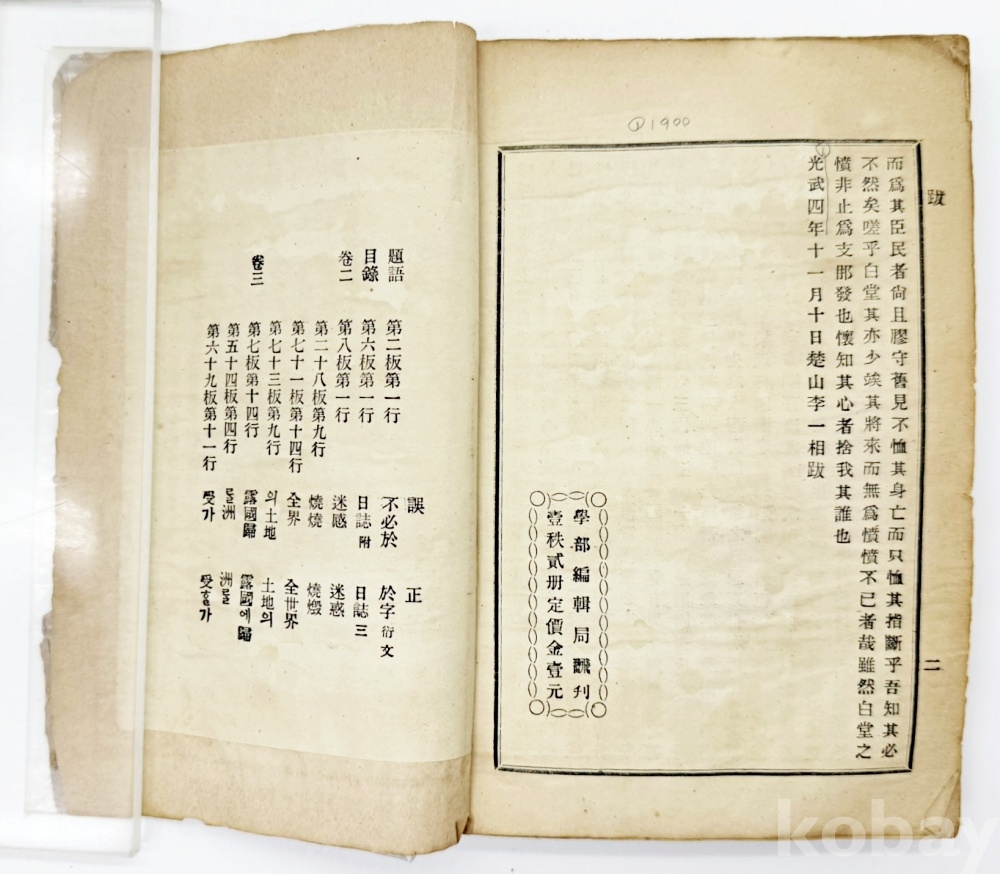 跋
而爲其臣民者尙且膠守舊見不恤其身亡而只恤其指斷乎吾知其必
不然矣嗟乎白堂其亦少竢其將來而無爲憤憤不已者哉雖然白堂之
憤非止爲支那發也懷知其心者捨我其誰也
光武四年十一月十日楚山李一相跋
二
①1900
①
學部編輯局飜刋
壹秩貳册定價金壹元
誤 正
題語 第二板第一行 不必於 於字衍文
目錄 第六板第一行 日誌附 日誌三
卷二 第八板第一行 迷感 迷惑
第二十八板第九行 燒燒 燒燬
第七十一板第十四行 全界 全世界
第七十三板第九行 의土地 土地의
卷三 第七板第十四行 露國歸 露國에歸
第五十四板第四行 를洲 洲를
第六十九板第十一行 受가 受하가
kobay